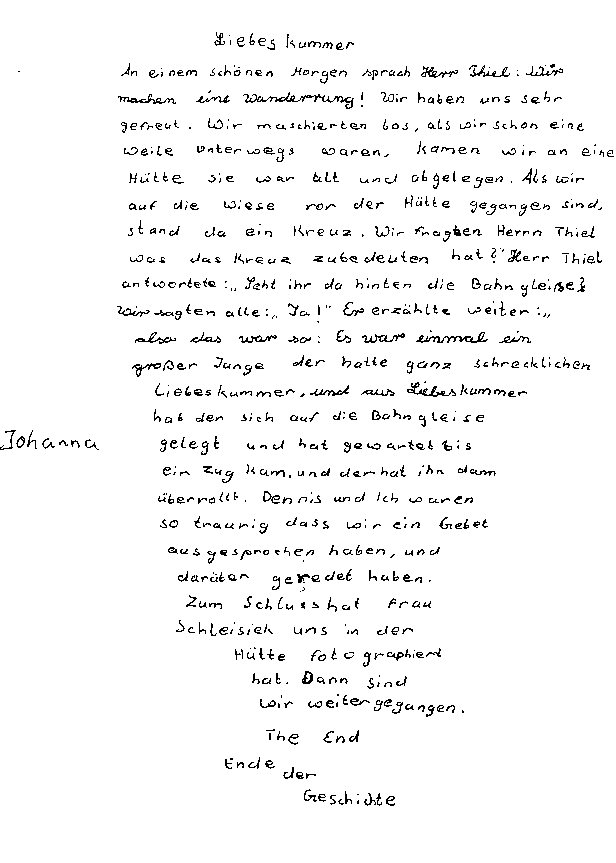 Liebeskummer
An einem schönen Morgen sprach Herr Thiel: Wir
machen eine Wanderrung! Wir haben uns sehr
gefreut. Wir maschierten los, als wir schon eine
weile unterwegs waren, kamen wir an eine
Hütte sie war alt und abgelegen. Als wir
auf die wiese vor der Hütte gegangen sind,
stand da ein Kreuz. Wir fragten Herrn Thiel
was das Kreuz zubedeuten hat?" Herr Thiel
antwortete:„ Seht ihr da hinten die Bahngleise?
Wir sagten alle:„ Ja!" Er erzählte weiter:„
also das war so: Es war einmal ein
großer Junge der hatte ganz schrecklichen
Liebeskummer, und aus Liebeskummer
hat der sich auf die Bahngleise
Johanna gelegt und hat gewartet bis
ein Zug kam, und der hat ihn dann
überrollt. Dennis und Ich waren
so traurig dass wir ein Gebet
ausgesprochen haben, und
darüber geredet haben.
Zum Schluss hat Frau
Schleisiek uns in der
Hütte fotographiert
hat. Dann sind
wir weitergegangen.
The End
Ende
der
Geschichte